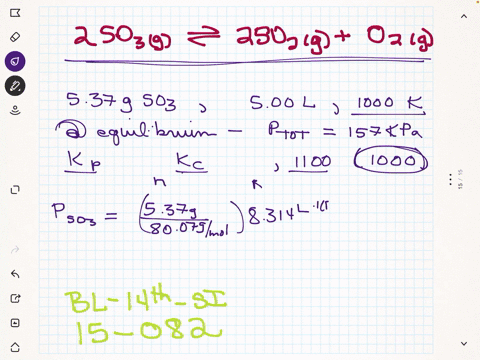 2SO₃(g) ⇌ 2SO₂(g) + O₂(g)
5.37 g SO₃ , 5.00 L , 1000 K
@ equilibrium — P_TOT = 157 KPa
Kp Kc , 1100 1000
n R
P_SO₃ = (5.37g / 80.07g/mol) 8.314 L
BL-14th-SI
15-082
15 / 15